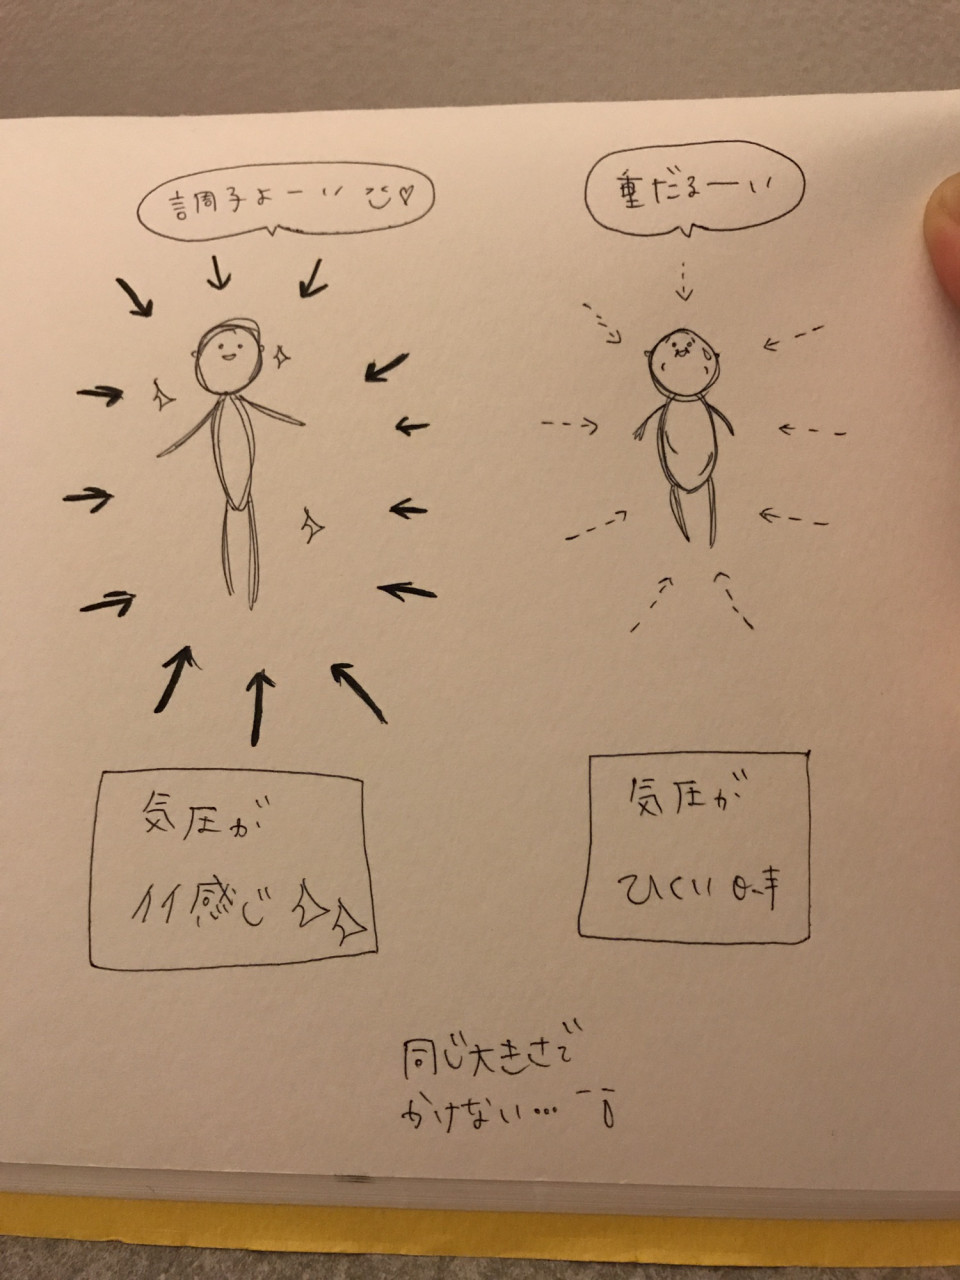 調子よーい
重だるーい
気圧が
イイ感じ
気圧が
ひくい時
同じ大きさで
かけない…